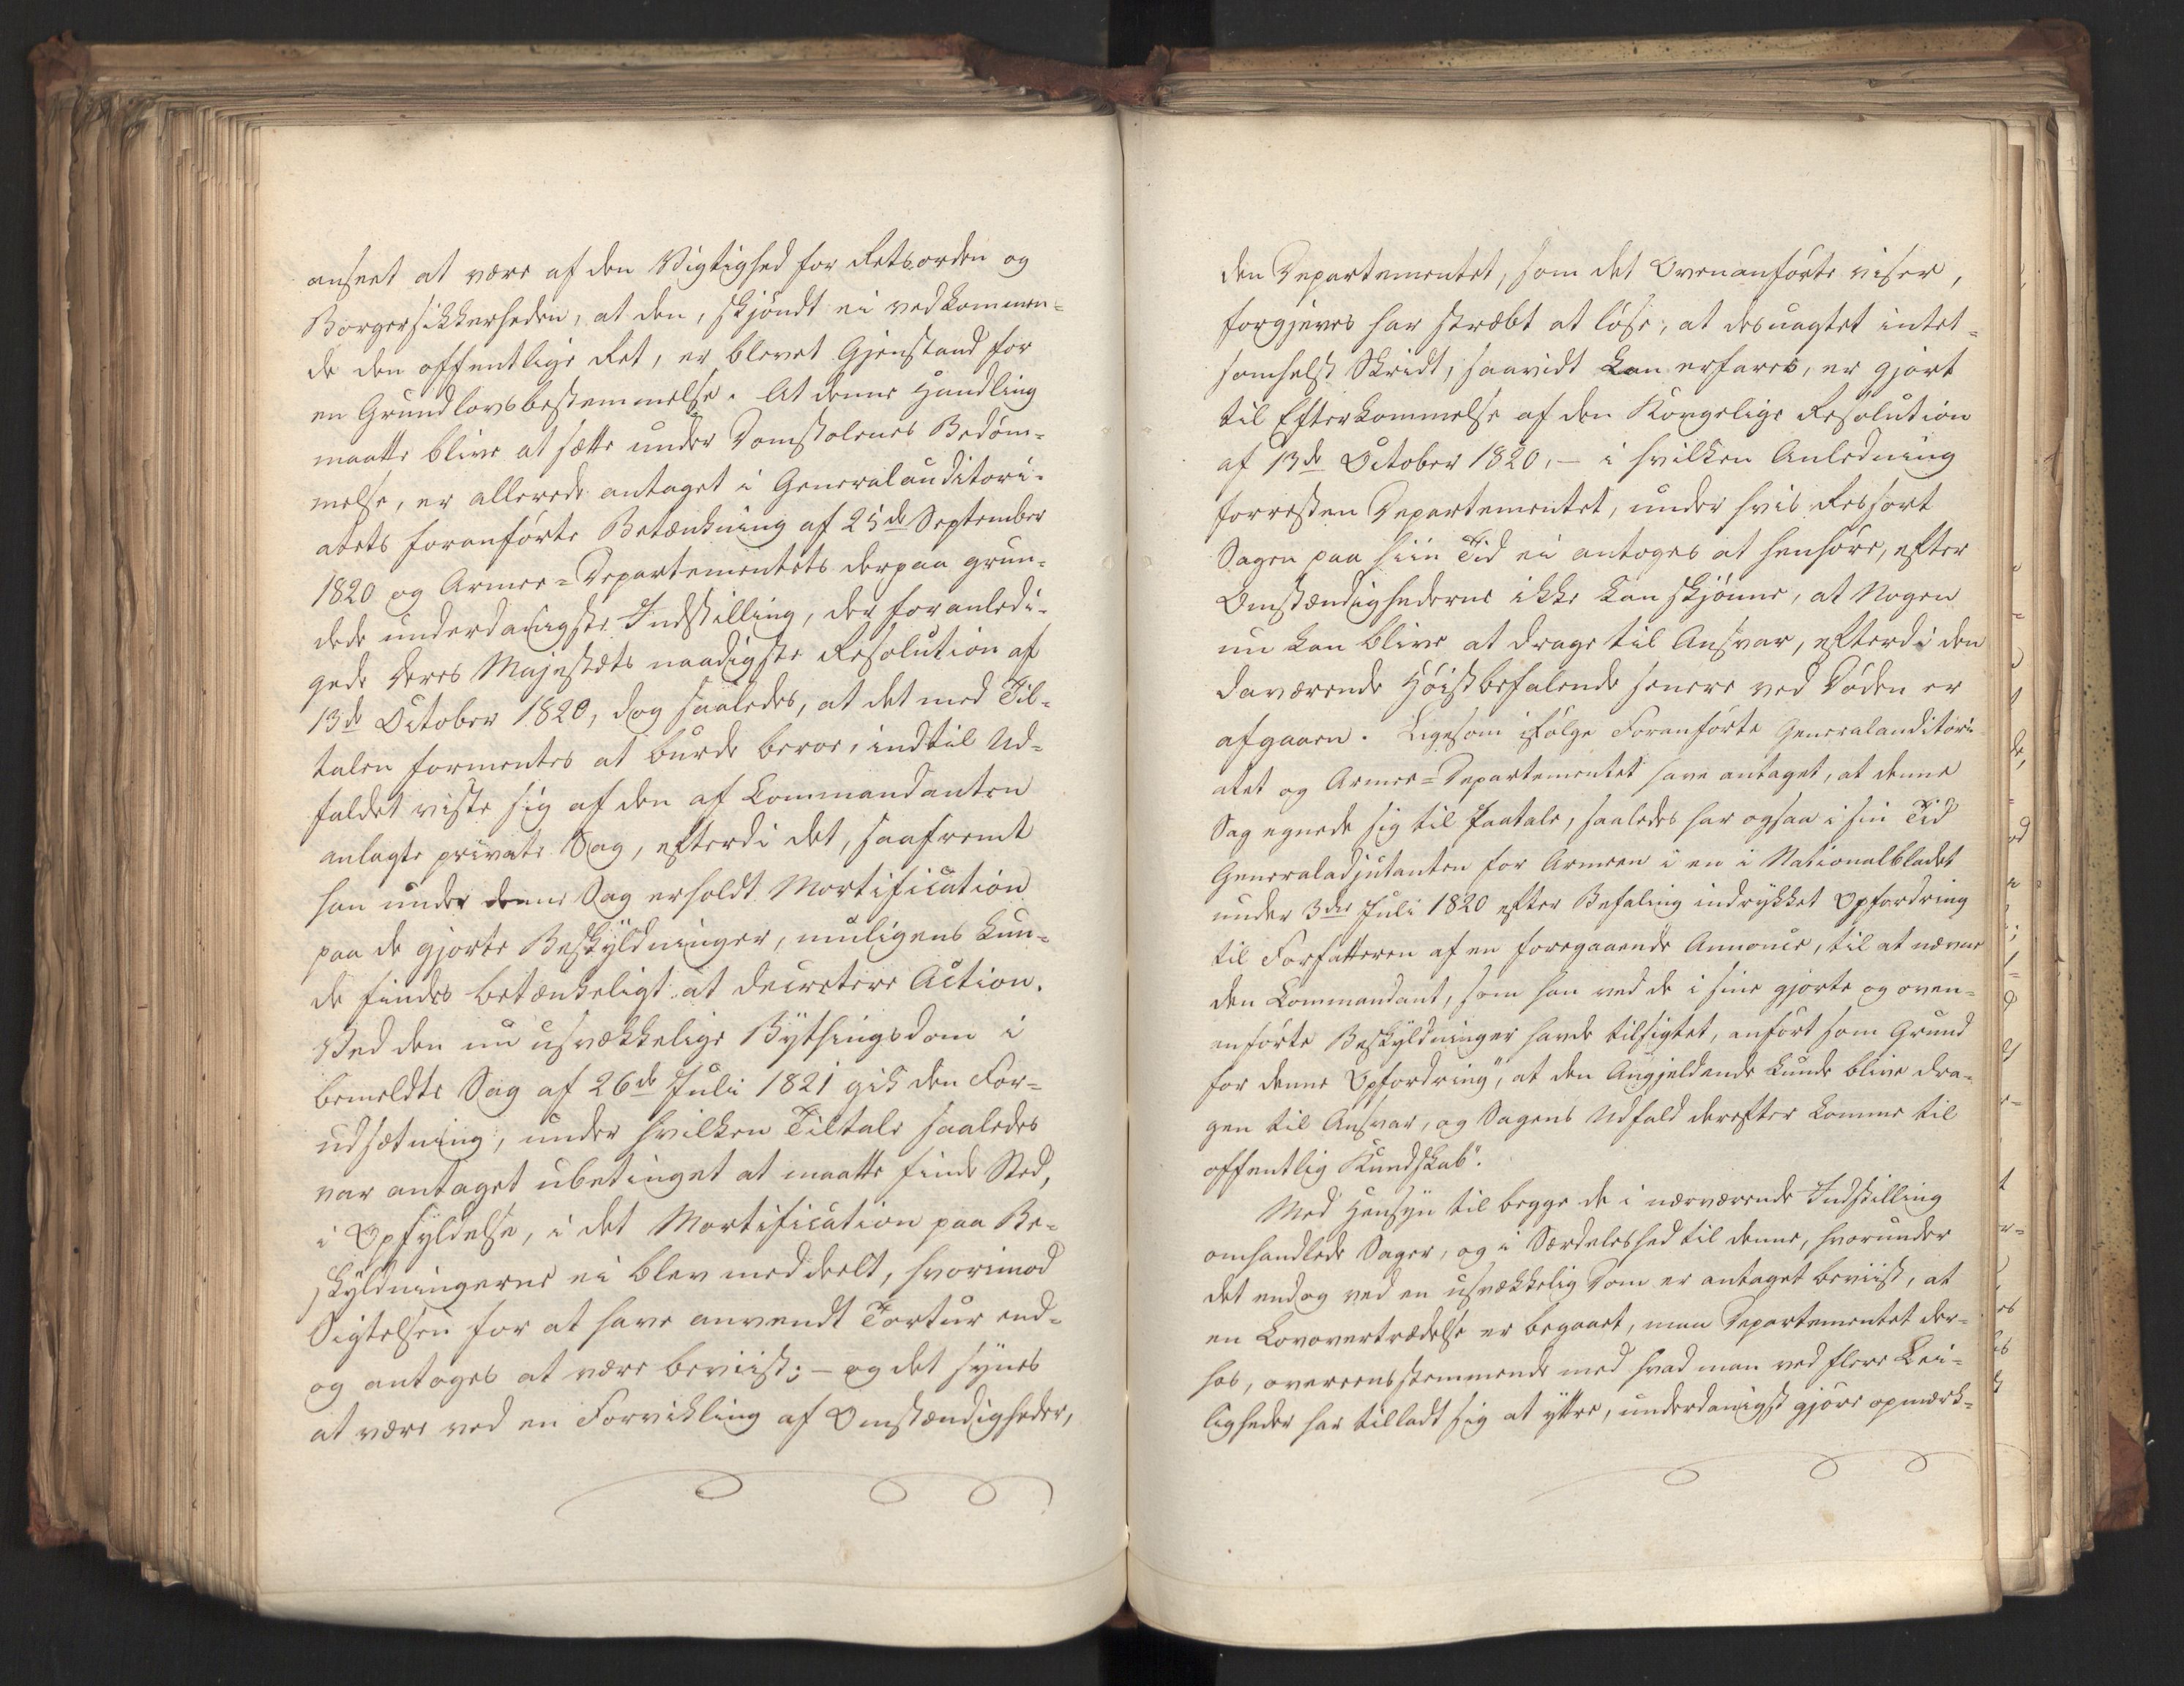 anseet at være af den Vigtighed for Retsorden og
Borgersikkerheden, at den, skjøndt ei vedkommen-
de den offentlige Ret, er blevet Gjenstand for
en Grundlovsbestemmelse. At denne Handling
maatte blive at sætte under Domstolenes Bedøm-
melse, er allerede antaget i Generalauditori-
atets foranførte Betænkning af 25de September
1820 og Armee-Departementets derpaa grun-
dede underdanigste Indstilling, der foranledi-
gede Deres Majestæts naadigste Resolution af
13de October 1820, dog saaledes, at det med Til-
talen formentes at burde beroe, indtil Ud-
faldet viste sig af den af Commandanten
anlagte private Sag, efterdi det, saafremt
han under denne Sag erholdt Mortification
paa de gjorte Beskyldninger, muligens kun-
de findes betænkeligt at decretere Action.
Ved den nu usvækkelige Bythingsdom i
bemeldte Sag af 26de Juli 1821 gik den For-
udsætning, under hvilken Tiltale saaledes
var antaget ubetinget at maatte finde Sted,
i Opfyldelse, i det Mortification paa Be-
skyldningerne ei blev meddeelt, hvorimod
Sigtelsen for at have anvendt Tortur end-
og antoges at være beviist; – og det synes
at være ved en Forvikling af Omstændigheder,
den Departementet, som det Ovenanførte viser,
forgjeves har stræbt at løse, at desuagtet intet-
somhelst Skridt, saavidt kan erfares, er gjort
til Efterkommelse af den Kongelige Resolution
af 13de October 1820, – i hvilken Anledning
forresten Departementet, under hvis Ressort
Sagen paa hiin Tid ei antoges at henhøre, efter
Omstændighederne ikke kan skjønne, at Nogen
nu kan blive at drage til Ansvar, efterdi den
daværende Høistbefalende senere ved Døden er
afgaaen. Ligesom ifølge Foranførte Generalauditori-
atet og Armee-Departementet have antaget, at denne
Sag egnede sig til Paatale, saaledes har ogsaa i sin Tid
Generaladjutanten for Armeen i en i Nationalbladet
under 3die Juli 1820 efter Befaling indrykket Opfordring
til Forfatteren af en foregaaende Annonce, til at nævne
den Commandant, som han ved de i sine gjorte og oven-
anførte Beskyldninger havde tilsigtet, anført som Grund
for denne Opfordring", at den Angjeldende kunde blive dra-
gen til Ansvar, og Sagens Udfald derefter komme til
offentlig Kundskab".
Med Hensyn til begge de i nærværende Indstilling
omhandlede Sager, og i Særdeleshed til denne, hvorunder
det endog ved en usvækkelig Dom er antaget beviist, at
en Lovovertrædelse er begaaet, maa Departementet der-
hos, overeensstemmende med hvad man ved flere Lei-
ligheder har tilladt sig at yttre, underdanigst gjøre opmærk-